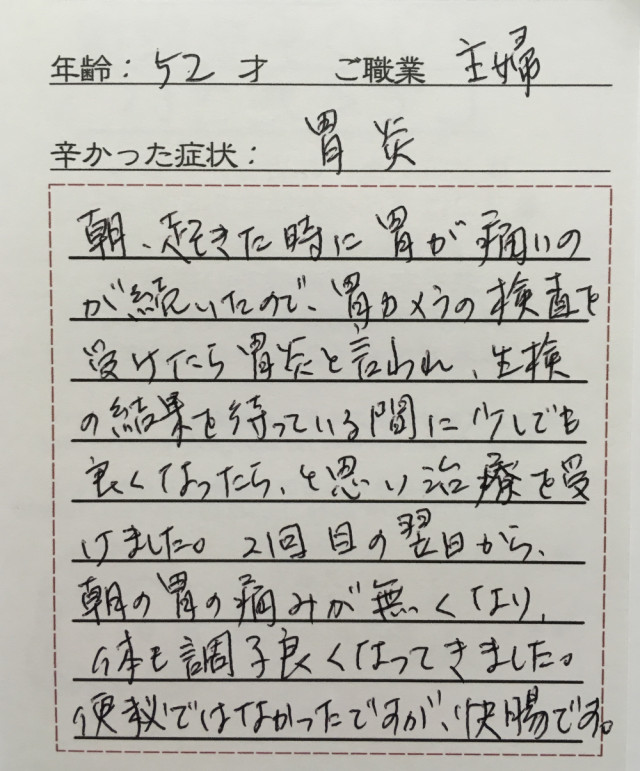 年齢： 52 才 ご職業 主婦
辛かった症状： 胃炎
朝、起きた時に胃が痛いの
が続いたので、胃カメラの検査を
受けたら胃炎と言われ、生検
の結果を待っている間に少しでも
良くなったら、と思い治療を受
けました。2回目の翌日から、
朝の胃の痛みが無くなり、
体も調子良くなってきました。
便秘ではなかったですが、快腸です。